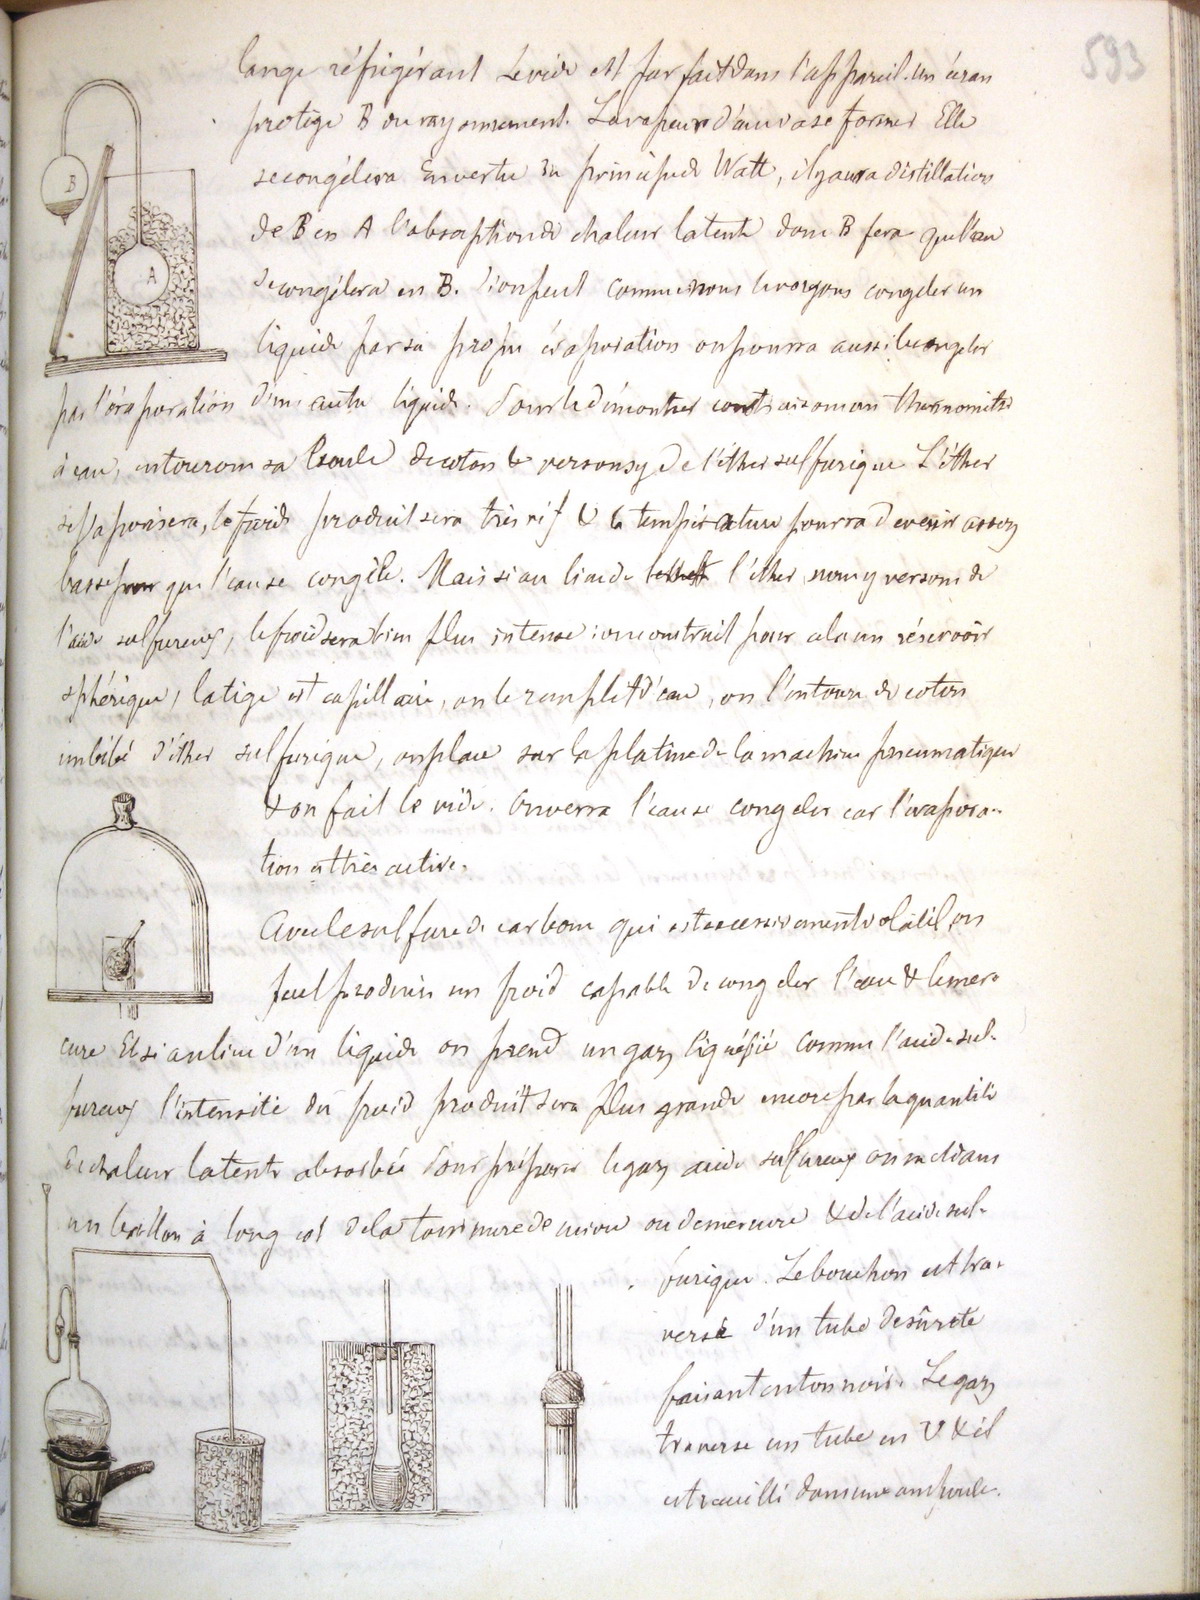 593
lange réfrigérant Le vide est parfait dans l'appareil. Un écran
protège B du rayonnement. La vapeur d'eau va se former Elle
se congélera En vertu du principe de Watt, il y aura distillation
de B en A l'absorption de chaleur latente dans B fera que l'eau
se congélera en B. Si on peut comme nous le voyons congeler un
liquide par sa propre évaporation on pourra aussi le congeler
par l'évaporation d'un autre liquide. Pour le démontrer construisons un thermomètre
à eau, entourons sa boule de coton & versons y de l'éther sulfurique L'éther
se vaporisera, le froid produit sera très vif & la température pourra devenir assez
basse pour que l'eau se congèle. Mais si au lieu de l'éther nous y versons de
l'acide sulfureux, le froid sera bien plus intense : on construit pour cela un réservoir
sphérique, la tige est capillaire, on le remplit d'eau, on l'entoure de coton
imbibé d'éther sulfurique, on place sur la platine de la machine pneumatique
& on fait le vide. On verra l'eau se congeler car l'évapora-
tion est très active.
Avec le sulfure de carbone qui est excessivement volatil, on
peut produire un froid capable de congeler l'eau & le mer-
cure Et si au lieu d'un liquide on prend un gaz liquéfié comme l'acide sul-
fureux l'intensité du froid produit sera plus grande encore par la quantité
de chaleur latente absorbée Pour préparer le gaz acide sulfureux on met dans
un ballon à long col de la tournure de cuivre ou de mercure & de l'acide sul-
furique. Le bouchon est tra-
versé d'un tube de sûreté
faisant entonnoir. Le gaz
traverse un tube en U & il
est recueilli dans une ampoule.
B
A